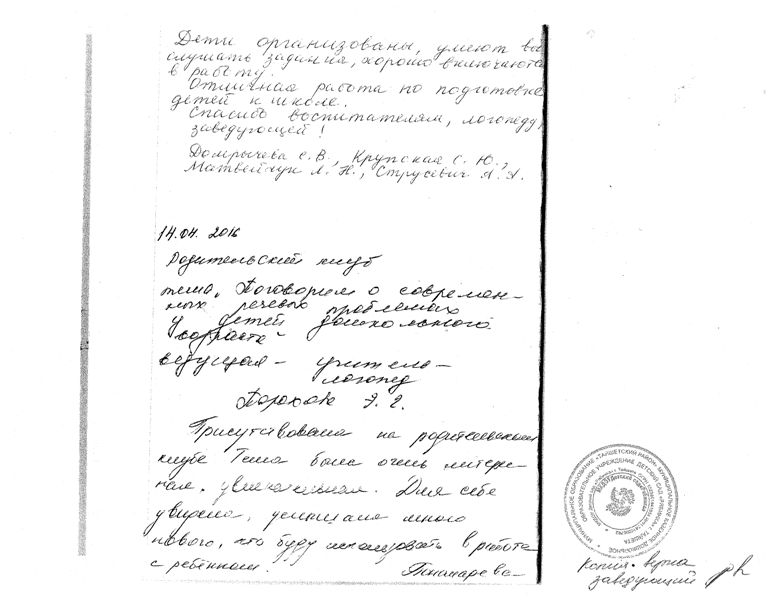 Дети организованы, умеют вы
слушать задания, хорошо включаются
в работу.
Отличная работа по подготовке
детей к школе.
Спасибо воспитателям, логопеду,
заведующей!
С. В., Крупская С. Ю.,
Матвейчук Л. Н., Струсевич Я. А.
14.04. 2016
Родительский клуб
тема, Поговорим о современ-
ных речевых проблемах
у детей дошкольного
возраста-
ведущая - учитель-
логопед
Порохова Э. Г.
Присутствовала на родительском
клубе Тема была очень интерес-
ная. увлекательная. Для себе
увидела, услышала много
нового, что буду использовать в работе
с ребёнком.
МУНИЦИПАЛЬНОЕ ОБРАЗОВАНИЕ «ТАЙШЕТСКИЙ РАЙОН»
Копия верна
заведующий